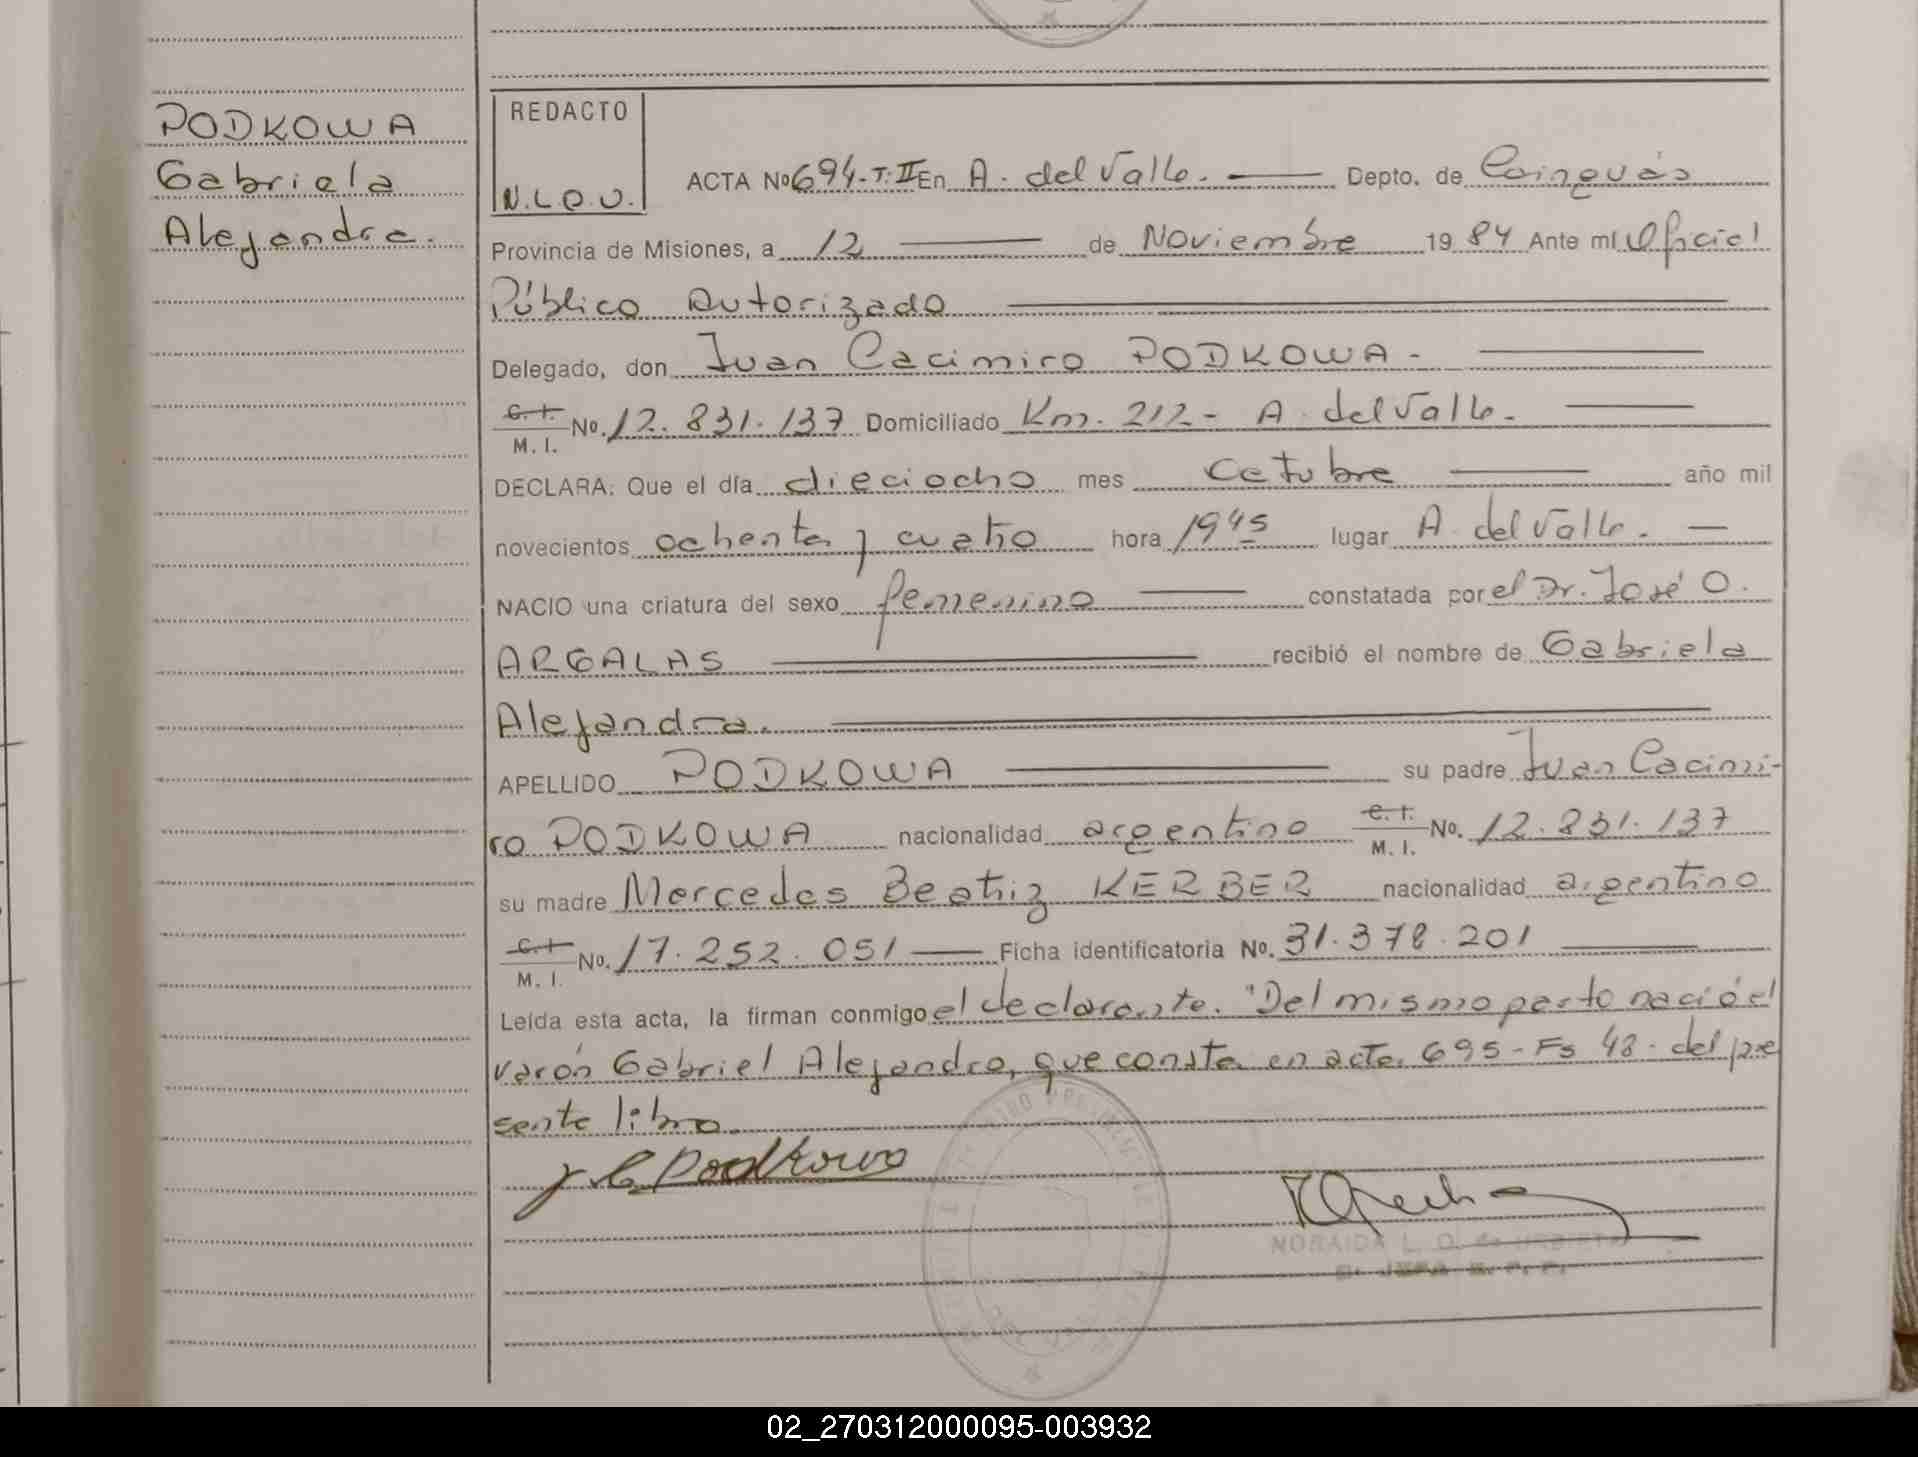 PODKOWA
Gabriela
Alejandra.
REDACTO
N.L.O.U.
ACTA Nº 694-T:II En A. del Valle. Depto. de Cainguás
Provincia de Misiones, a 12 de Noviembre 1984 Ante mí Oficial
Público Autorizado
Delegado, don Juan Cacimiro PODKOWA -
C. I. M. I. Nº. 12.831.137 Domiciliado Km. 212- A. del Valle.
DECLARA: Que el día dieciocho mes octubre año mil
novecientos ochenta y cuatro hora 19 45 lugar A. del Valle.
NACIO una criatura del sexo femenino constatada por el Dr. José O.
ARGALAS recibió el nombre de Gabriela
Alejandra.
APELLIDO PODKOWA su padre Juan Cacimi-
ro PODKOWA nacionalidad argentino C. I. M. I. Nº. 12.831.137
su madre Mercedes Beatriz KERBER nacionalidad argentino
C. I. M. I. Nº. 17.252.051 Ficha identificatoria Nº. 31.378.201
Leída esta acta, la firman conmigo el declarante. "Del mismo parto nació el
varón Gabriel Alejandro, que consta en acta 695-Fs 48- del pre
sente libro.
J C Podkowa
NORAIDA L. O. de URBIETA
02_270312000095-003932